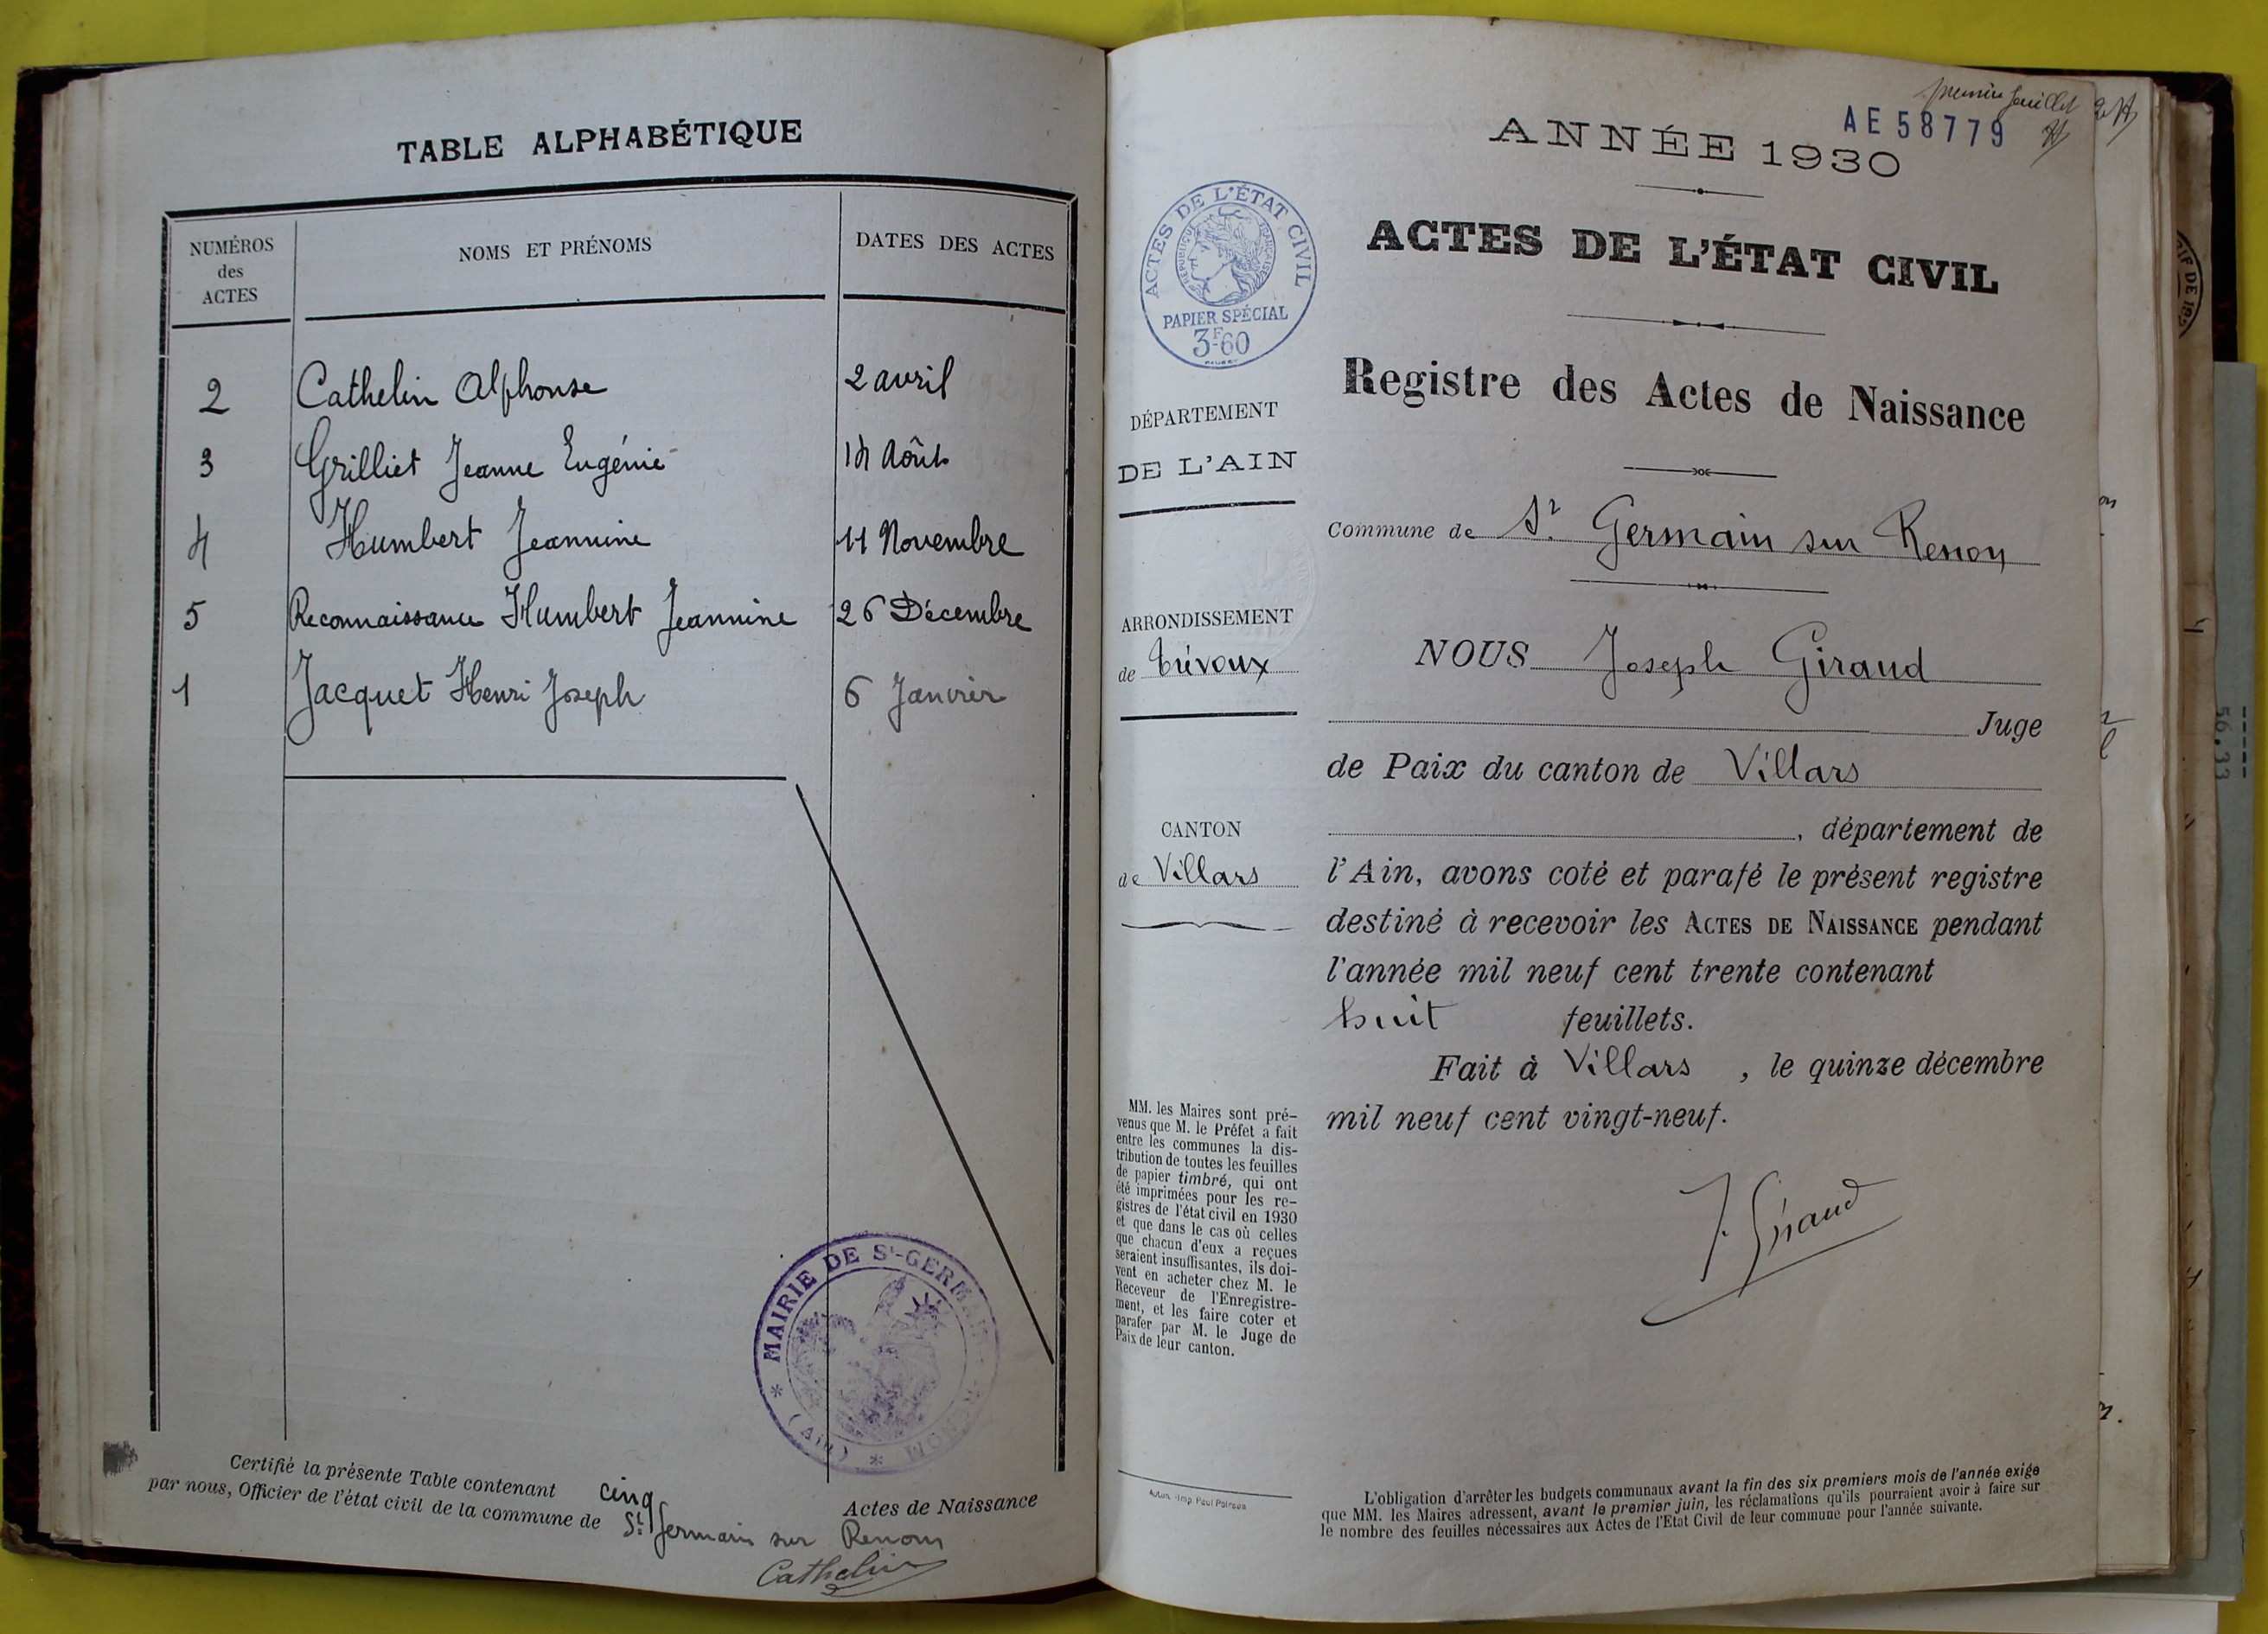 TABLE ALPHABÉTIQUE
NUMÉROS
des
ACTES
NOMS ET PRÉNOMS
DATES DES ACTES
2 Cathelin Alphonse 2 avril
3 Grilliet Jeanne Eugénie 14 Août
4 Humbert Jeannine 11 Novembre
5 Reconnaissance Humbert Jeannine 26 Décembre
1 Jacquet Henri Joseph 6 Janvier
MAIRIE DE St-GERMAIN
(Ain)
Certifié la présente Table contenant cinq Actes de Naissance
par nous, Officier de l'état civil de la commune de St Germain sur Renom
Cathelin
premier feuillet
AE 58779
ANNÉE 1930
ACTES DE L'ÉTAT CIVIL
RÉPUBLIQUE FRANÇAISE
PAPIER SPÉCIAL
3F-60
ACTES DE L'ÉTAT CIVIL
Registre des Actes de Naissance
DÉPARTEMENT
DE L'AIN
Commune de St. Germain sur Renon
ARRONDISSEMENT
de Trévoux
NOUS Joseph Giraud
Juge
de Paix du canton de Villars
CANTON
de Villars
, département de
l'Ain, avons coté et parafé le présent registre
destiné à recevoir les ACTES DE NAISSANCE pendant
l'année mil neuf cent trente contenant
huit feuillets.
Fait à Villars , le quinze décembre
mil neuf cent vingt-neuf.
J. Giraud
MM. les Maires sont pré-
venus que M. le Préfet a fait
entre les communes la dis-
tribution de toutes les feuilles
de papier timbré, qui ont
été imprimées pour les re-
gistres de l'état civil en 1930
et que dans le cas où celles
que chacun d'eux a reçues
seraient insuffisantes, ils doi-
vent en acheter chez M. le
Receveur de l'Enregistre-
ment, et les faire coter et
parafer par M. le Juge de
Paix de leur canton.
L'obligation d'arrêter les budgets communaux avant la fin des six premiers mois de l'année exige
que MM. les Maires adressent, avant le premier juin, les réclamations qu'ils pourraient avoir à faire sur
le nombre des feuilles nécessaires aux Actes de l'Etat Civil de leur commune pour l'année suivante.
56.33